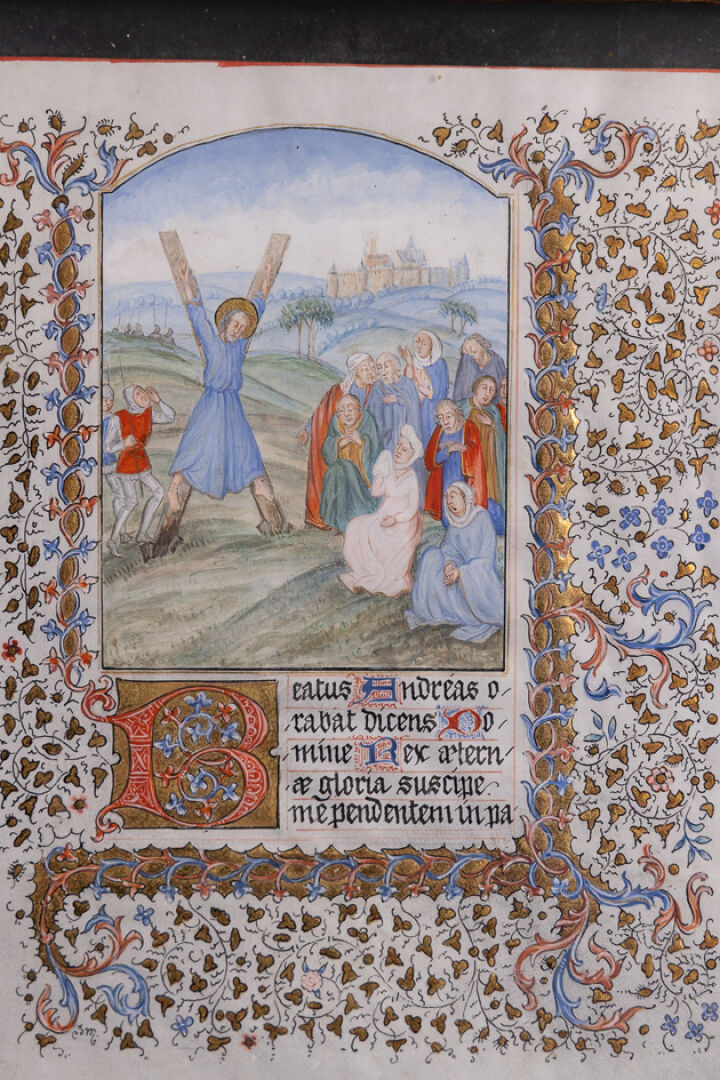 Beatus Andreas o-
rabat dicens Do-
mine Rex ætern-
æ gloria suscipe
me pendentem in pa-
JM